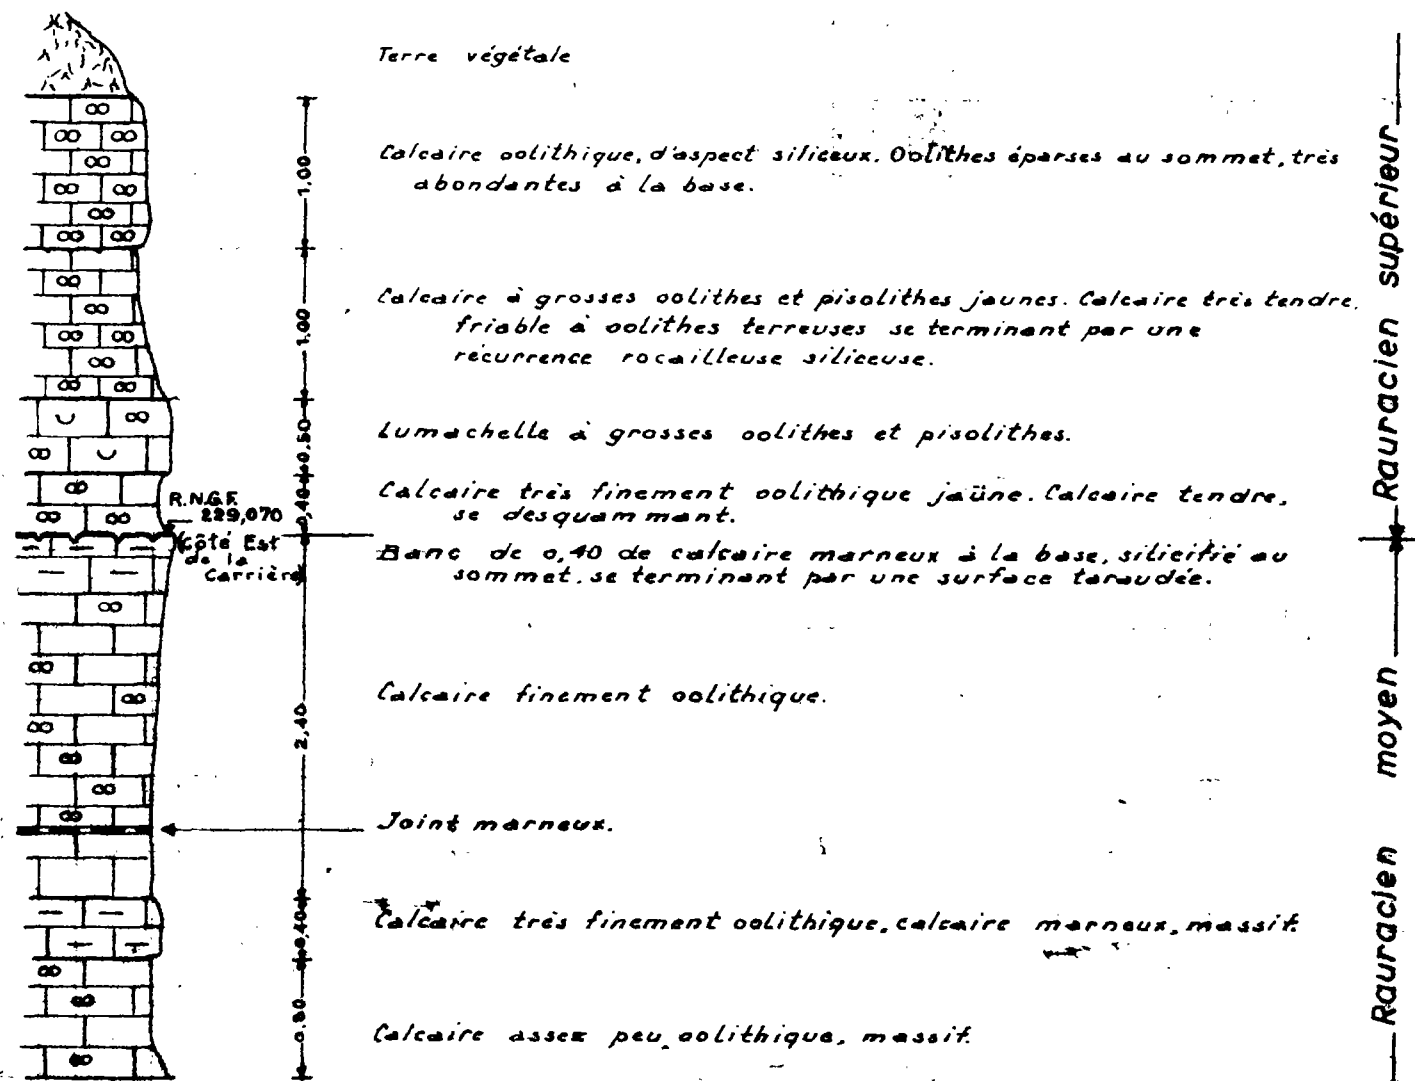 Terre végétale
1,00
Calcaire oolithique, d'aspect siliceux. Oolithes éparses au sommet, très
abondantes à la base.
1,00
Calcaire à grosses oolithes et pisolithes jaunes. Calcaire très tendre,
friable à oolithes terreuses se terminant par une
récurrence rocailleuse siliceuse.
0,50
Lumachelle à grosses oolithes et pisolithes.
0,40
Calcaire très finement oolithique jaüne. Calcaire tendre,
se desquammant.
R.N.G.F.
229,070
Côté Est
de la
Carrière
Banc de 0,40 de calcaire marneux à la base, silicifié au
sommet, se terminant par une surface taraudée.
2,40
Calcaire finement oolithique.
Joint marneux.
0,40
Calcaire très finement oolithique, calcaire marneux, massif.
0,80
Calcaire assez peu oolithique, massif.
Rauracien supérieur
Rauracien moyen